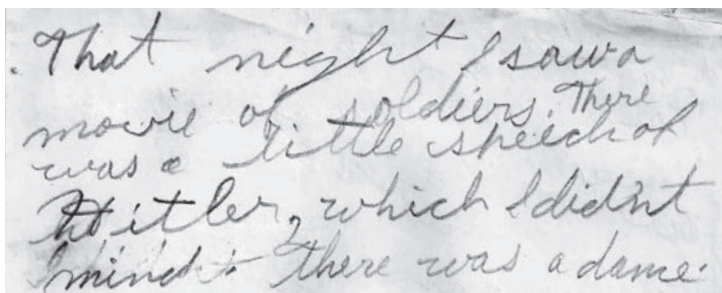 That night I saw a
movie of soldiers. There
was a little speech of
Hitler, which I didn't
mind. There was a dance.